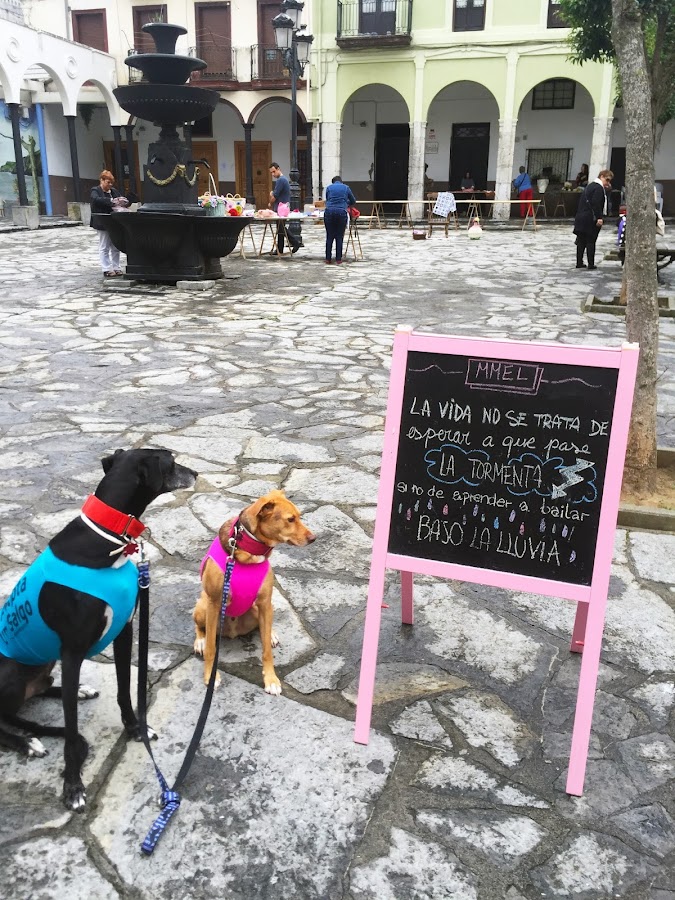 MMEL
LA VIDA NO SE TRATA DE
esperar a que pase
LA TORMENTA
si no de aprender a bailar
BAJO LA LLUVIA
Galgo